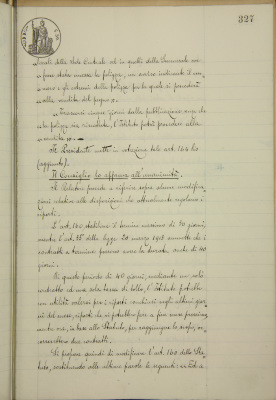 327
locale della Sede Centrale ed in quella della Succursale
fosse stata emessa la polizza, un avviso indicante il
nome e gli estremi della polizza per la quale si procederà
alla vendita del pegno".
"Trascorsi cinque giorni dalla pubblicazione senza che
la polizza sia rinnovata, l'Istituto potrà procedere alla
vendita".
Il Presidente mette in votazione tale art. 144 bis
(aggiunto).
Il Consiglio lo approva all'unanimità.
Il Relatore procede a riferire sopra alcune modifica-
zioni relative alle disposizioni che attualmente regolano i
riporti.
L'art. 160 stabilisce il termine massimo di 30 giorni,
mentre l'art. 15 della legge 20 marzo 1913 ammette che i
contratti a termine possano avere la durata anche di 40
giorni.
In questo periodo di 40 giorni, mediante un solo
contratto ed una sola tassa di bollo, l'Istituto potrebbe
con utilità valersi per i riporti conclusi negli ultimi gior-
ni del mese, riporti che si potrebbero per a fine mese prossimo,
mentre ora, in base allo Statuto, per raggiungere lo scopo, oc-
correrebbero due contratti.
Si propone quindi di modificare l'art. 160 dello Sta-
tuto, sostituendo alle ultime parole le seguenti: